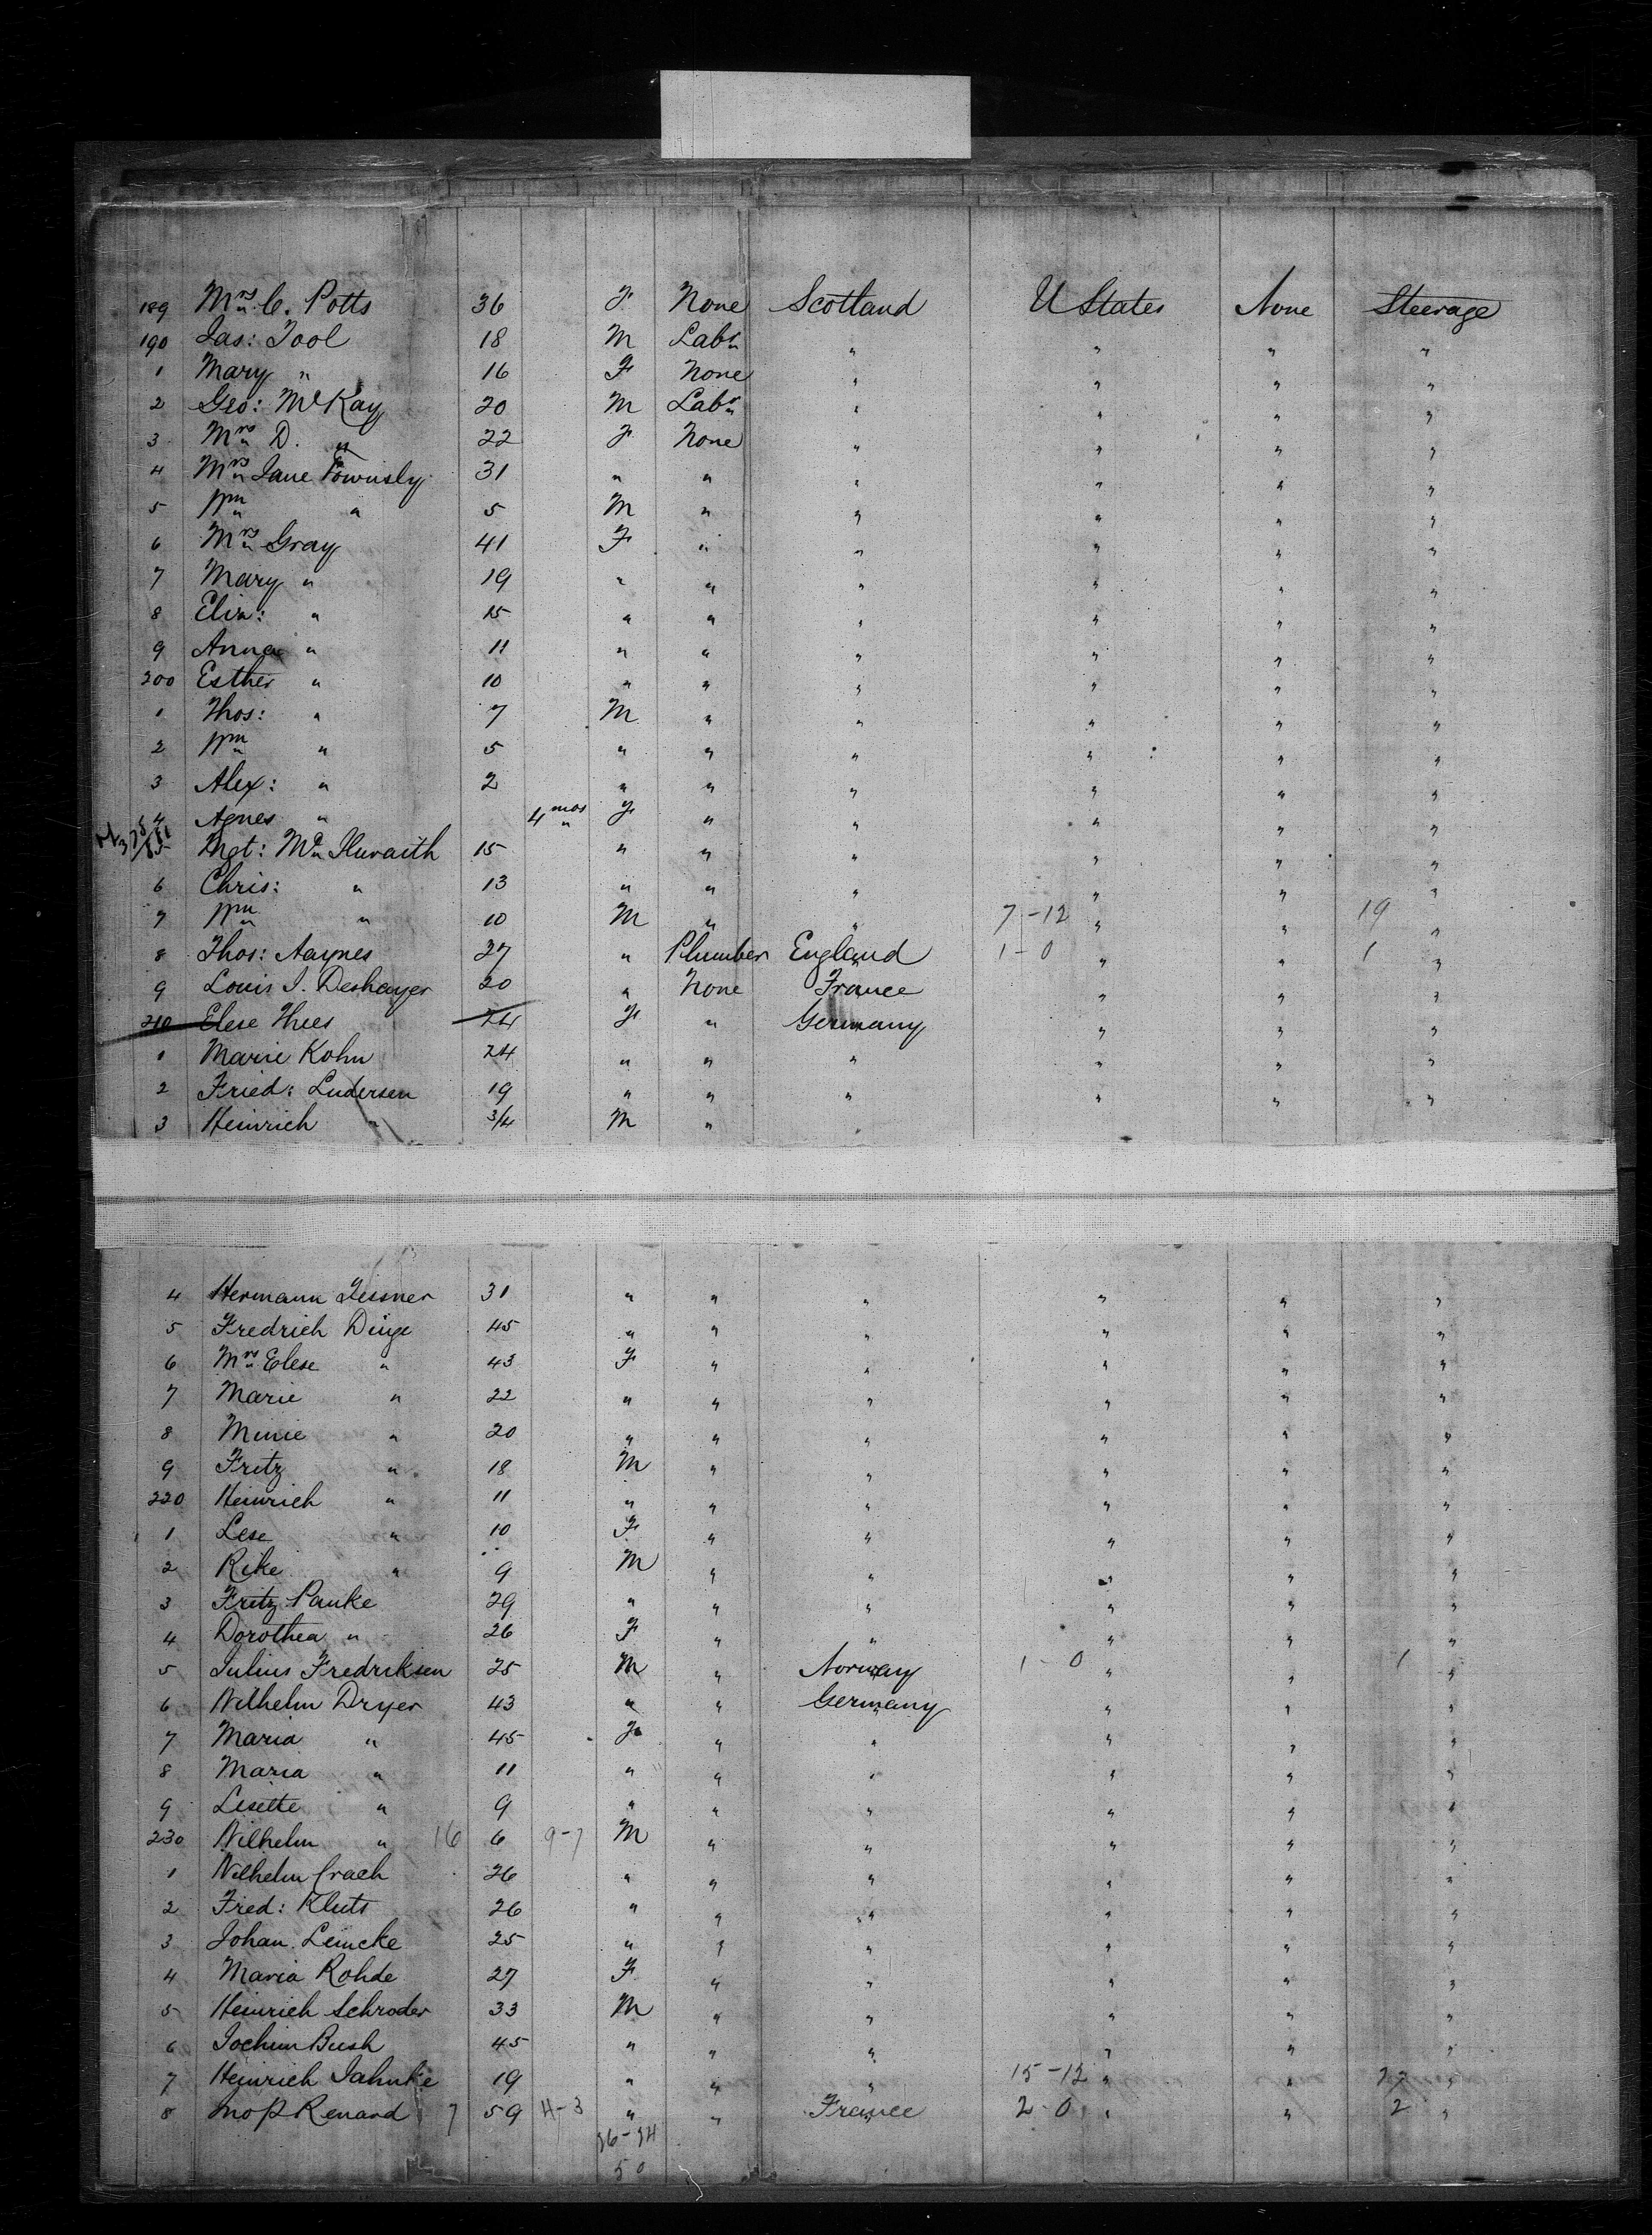 189 Mrs C. Potts 36 F None Scotland U States None Steerage
190 Jas: Tool 18 M Labr " " " "
1 Mary " 16 F None " " " "
2 Geo: McKay 20 M Labr " " " "
3 Mrs D. " 22 F None " " " "
4 Mrs Jane Townsly 31 " " " " " "
5 Wm " 5 M " " " " "
6 Mrs Gray 41 F " " " " "
7 Mary " 19 " " " " " "
8 Eliz: " 15 " " " " " "
9 Anna " 11 " " " " " "
200 Esther " 10 " " " " " "
1 Thos: " 7 M " " " " "
2 Wm " 5 " " " " " "
3 Alex: " 2 " " " " " "
4 Agnes " 4 mos F " " " " "
5 Mgt: McIlwraith 15 " " " " " "
6 Chris: " 13 " " " " " "
7 Wm " 10 M " " 7-12 " " 19 "
8 Thos: Haynes 27 " Plumber England 1-0 " " 1 "
9 Louis J. Deshayer 20 " None France " " "
210 Elese Thees 24 F " Germany " " "
1 Marie Kohn 24 " " " " " "
2 Fried: Ludersen 19 " " " " " "
3 Heinrich " 3/4 M " "
4 Hermann Tessner 31 " " " " " "
5 Fredrich Dinge 45 " " " " " "
6 Mrs Elese " 43 F " " " " "
7 Marie " 22 " " " " " "
8 Minie " 20 " " " " " "
9 Fritz " 18 M " " " " "
220 Heinrich " 11 " " " " " "
1 Lese " 10 F " " " " "
2 Rike " 9 M " " " " "
3 Fritz Panke 29 " " " " " "
4 Dorothea " 26 F " " " " "
5 Julius Fredriksen 25 M " Norway 1-0 " " 1 "
6 Wilhelm Dryer 43 " " Germany " " "
7 Maria " 45 F " " " " "
8 Maria " 11 " " " " " "
9 Lisette " 9 " " " " " "
230 Wilhelm " 16 6 9-7 M " " " " "
1 Wilhelm Crach 26 " " " " " "
2 Fred: Kluts 26 " " " " " "
3 Johan Lemcke 25 " " " " " "
4 Maria Rohde 27 F " " " " "
5 Heinrich Schroder 33 M " " " " "
6 Jochim Bush 45 " " " " " "
7 Heinrich Jahnke 19 " " " 15-12 " " 27 "
8 Renard 7 59 4-3 " " France 2-0 " " 2 "
26-24
50